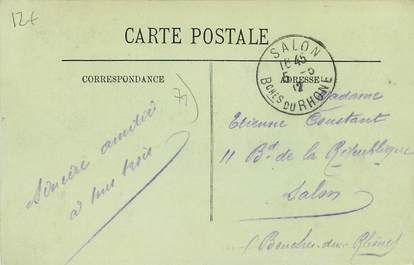 12€
CARTE POSTALE
CORRESPONDANCE
ADRESSE
SALON
16 45
5 - 5
12
BCHES DU RHONE
Sincère amitié
à tous trois
Madame
Etienne Constant
11 Bd de la République
Salon
(Bouches-du-Rhône)